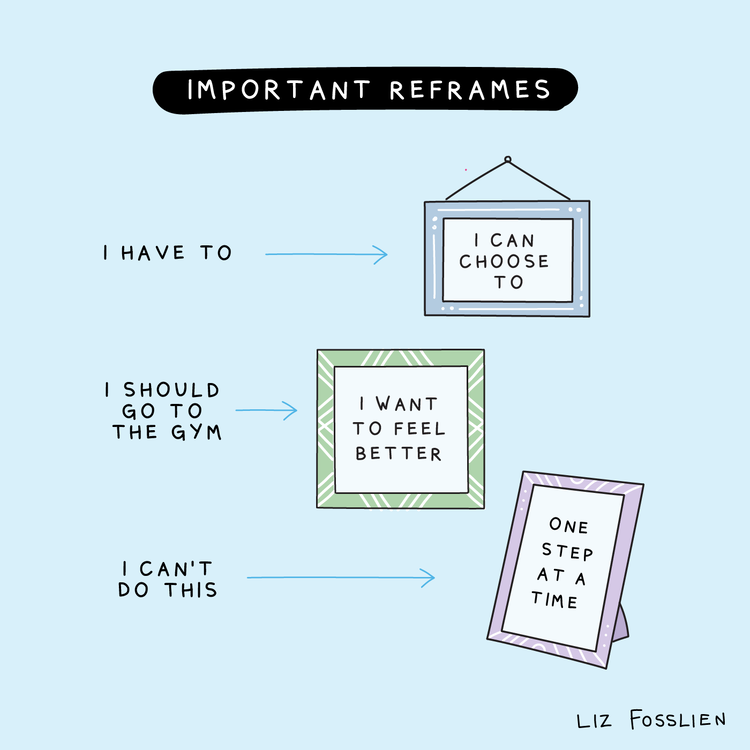 IMPORTANT REFRAMES
I HAVE TO
I CAN
CHOOSE
TO
I SHOULD
GO TO
THE GYM
I WANT
TO FEEL
BETTER
I CAN'T
DO THIS
ONE
STEP
AT A
TIME
LIZ FOSSLIEN